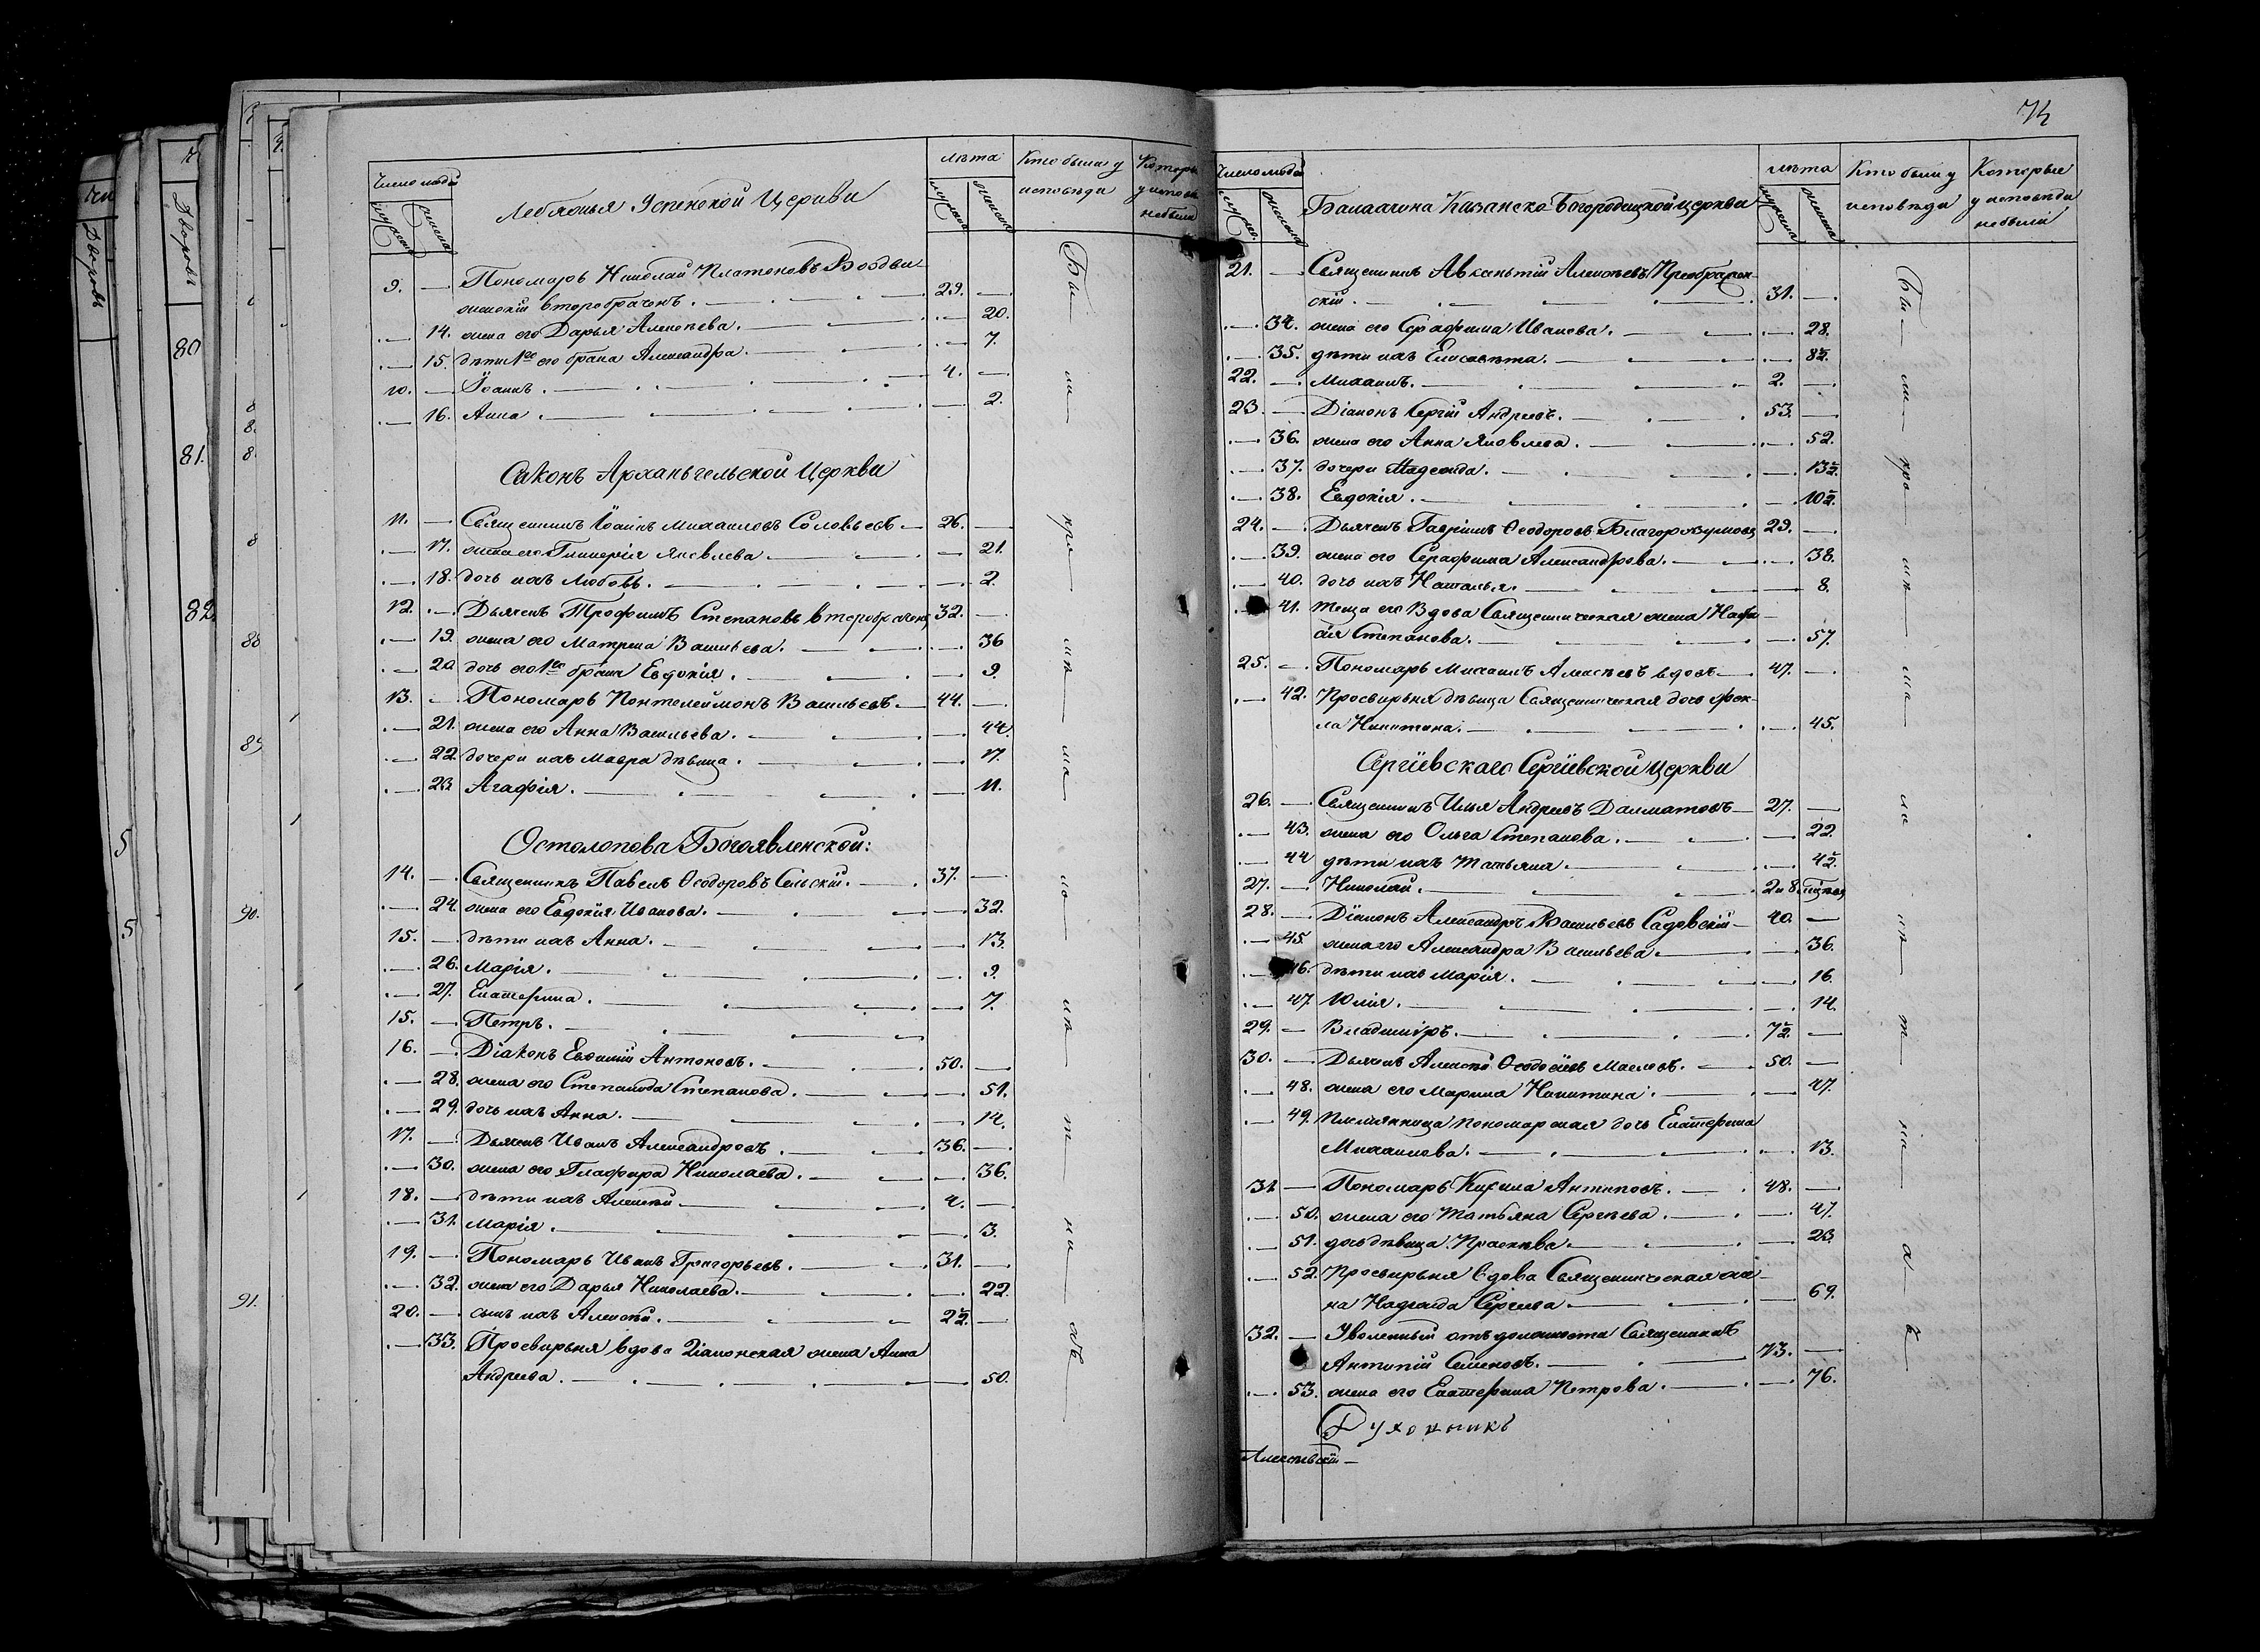 Число людей
мужеска
женска
Лебяжья Успенской Церкви
лѣта
мужеска
женска
Кто были у
исповѣди
Которые
у исповѣди
не были
9. Пономарь Николай Платоновъ Воздви-
женскій второбраченъ. 29.
14. жена его Дарья Алексѣева. 20.
15. дѣти 1го его брака Александра. 7.
10. Іоаннъ. 4.
16. Анна. 2.
Саконъ Архангельской Церкви
11. Священникъ Іоаннъ Михаиловъ Соловьевъ 26.
17. жена его Гликерія Яковлева. 21.
18. дочь ихъ Любовь. 2.
12. Дьячекъ Трофимъ Степановъ второбраченъ 32.
19. жена его Матрена Васильева. 36
20 дочь его 1го брака Евдокія. 9.
13. Пономарь Понтелеимонъ Васильевъ 44.
21. жена его Анна Васильева. 44.
22. дочери ихъ Мавра дѣвица. 17.
23 Агафія. 11.
Остолопова Богоявленской:
14. Священникъ Павелъ Ѳеодоровъ Сельскій. 37.
24. жена его Евдокія Иванова. 32.
15. дѣти ихъ Анна. 13.
26. Марія. 9.
27. Екатерина. 7.
15. Петръ.
16. Діаконъ Евѳимій Антоновъ. 50.
28. жена его Степанида Степанова. 51.
29. дочь ихъ Анна. 14.
17. Дьячекъ Иванъ Александровъ. 36.
30. жена его Глафира Николаева. 36.
18. дѣти ихъ Алексѣй 4.
31. Марія. 3.
19. Пономарь Иванъ Григорьевъ. 31.
32. жена его Дарья Николаева. 22.
20. сынъ ихъ Алексѣй. 2½.
33. Просвирьня вдова Діаконская жена Анна
Андреева. 50.
74
Число людей
мужеска
женска
Балахчина Казанско-Богородицкой церкви
лѣта
мужеска
женска
Кто были у
исповѣди
Которые
у исповѣди
не были
21. Священникъ Авксентій Алексѣевъ Преображен-
скій. 31.
34. жена его Серафима Иванова. 28.
35. дѣти ихъ Елисавета. 8½.
22. Михаилъ. 2.
23. Діаконъ Сергій Андреевъ. 53.
36. жена его Анна Яковлева. 52.
37. дочери Надежда. 13½.
38. Евдокія. 10½.
24. Дьячекъ Гавріилъ Ѳеодоровъ Благоразумовъ 29.
39. жена его Серафима Александрова. 38.
40. дочь ихъ Наталья. 8.
41. теща его вдова Священническая жена
Степанова. 57.
25. Пономарь Михаилъ Алексѣевъ вдовъ 47.
42. Просвирьня дѣвица Священническая дочь Фек-
ла Никитина. 45.
Сергіевскаго Сергіевской церкви
26. Священникъ Илья Андреевъ Далматовъ 27.
43. жена его Ольга Степанова. 22.
44 дѣти ихъ Татьяна. 4½.
27. Николай. 2 и 8. мѣсяц
28. Діаконъ Александръ Васильевъ Садовскій 40.
45. жена его Александра Васильева. 36.
46. дѣти ихъ Марія. 16.
47. Юлія. 14.
29. Владиміръ. 7½.
30. Дьячекъ Алексѣй Ѳеодосіевъ Масловъ. 50.
48. жена его Марина Никитина. 47.
49. Племянница пономарская дочь Екатерина
Михаилова. 13.
31 Пономарь Кирила Антиповъ. 48.
50. жена его Татьяна Сергѣева. 47.
51. дочь дѣвица Прасковья. 23.
52. Просвирьня вдова Священническая же-
на Надежда Сергѣева 69.
32. Уволенный отъ должности Священникъ
Антипій Семеновъ. 73.
53. жена его Екатерина Петрова. 76.
Духовникъ
80
81.
82.
88
89
90.
91.
5
5
Дворовъ
Дворовъ